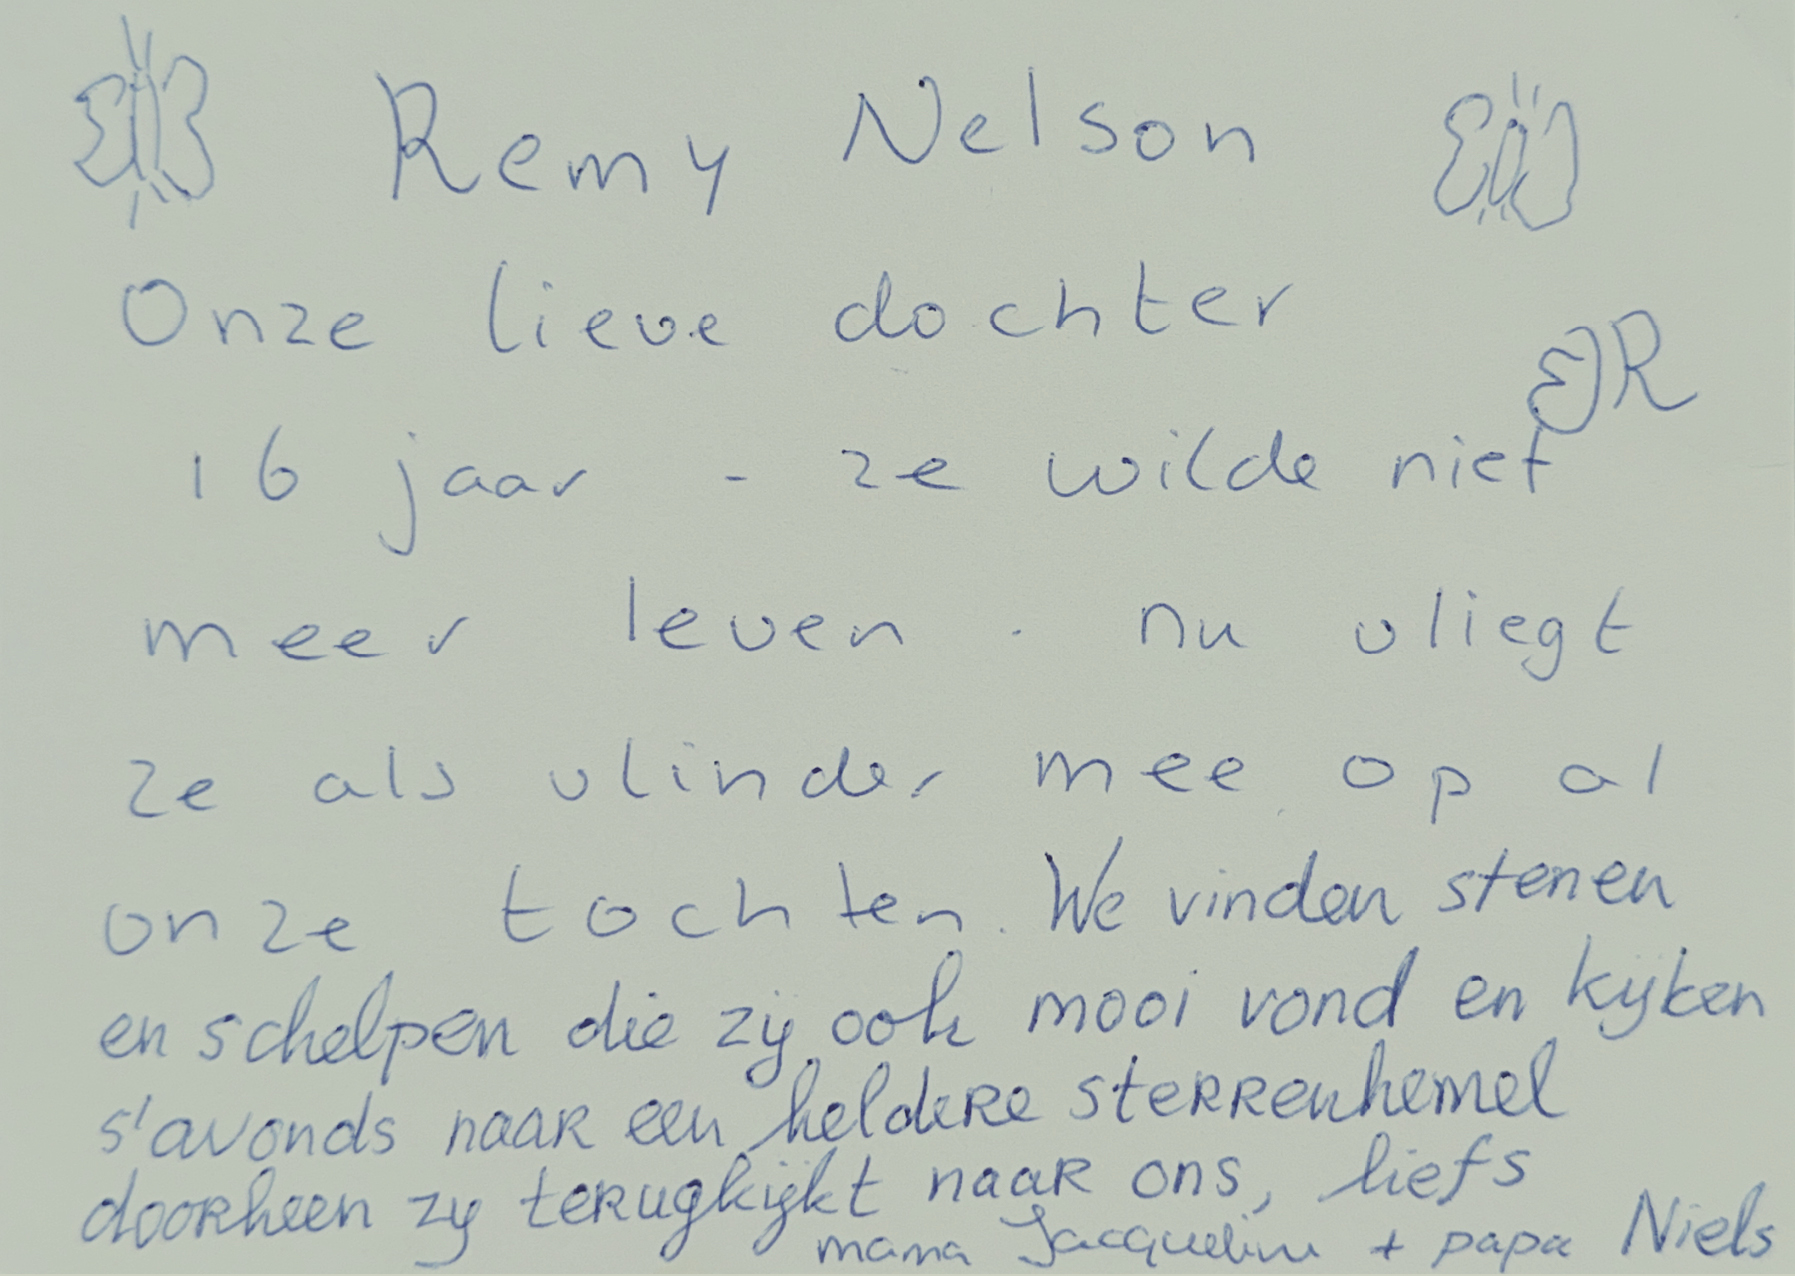 Remy Nelson
Onze lieve dochter
R
16 jaar - ze wilde niet
meer leven. nu vliegt
ze als vlinder mee op al
onze tochten. We vinden stenen
en schelpen die zij ook mooi vond en kijken
s'avonds naar een heldere sterrenhemel
doorheen zij terugkijkt naar ons, liefs
mama Jacqueline + papa Niels